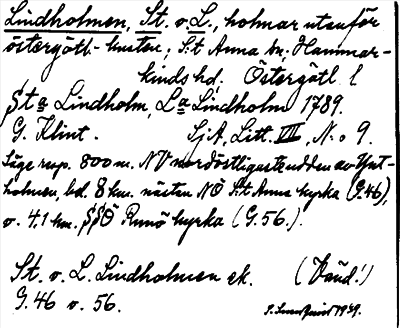 Lindholmen, St. o. L., holmar utanför
östergötl.-kusten; S:t Anna sn; Hammar-
kinds hd, Östergötl. l
Sta Lindholm, La Lindholm 1789.
G. Klint. SjA, Litt. VIII, N:o 9.
Läge resp. 800 m. NV nordöstligaste udden av Yxt-
holmen, bel. 8 km. nästan NÖ S:t Anna kyrka (G.46),
o. 4.1 km. SSÖ Runö kyrka (G.56).
St. o. L. Lindholmen ek. (Vånd!)
G.46 o. 56.